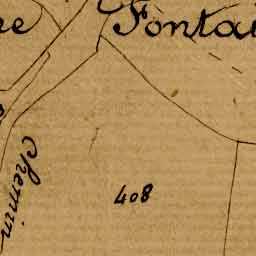 re Fontai
chemin
408